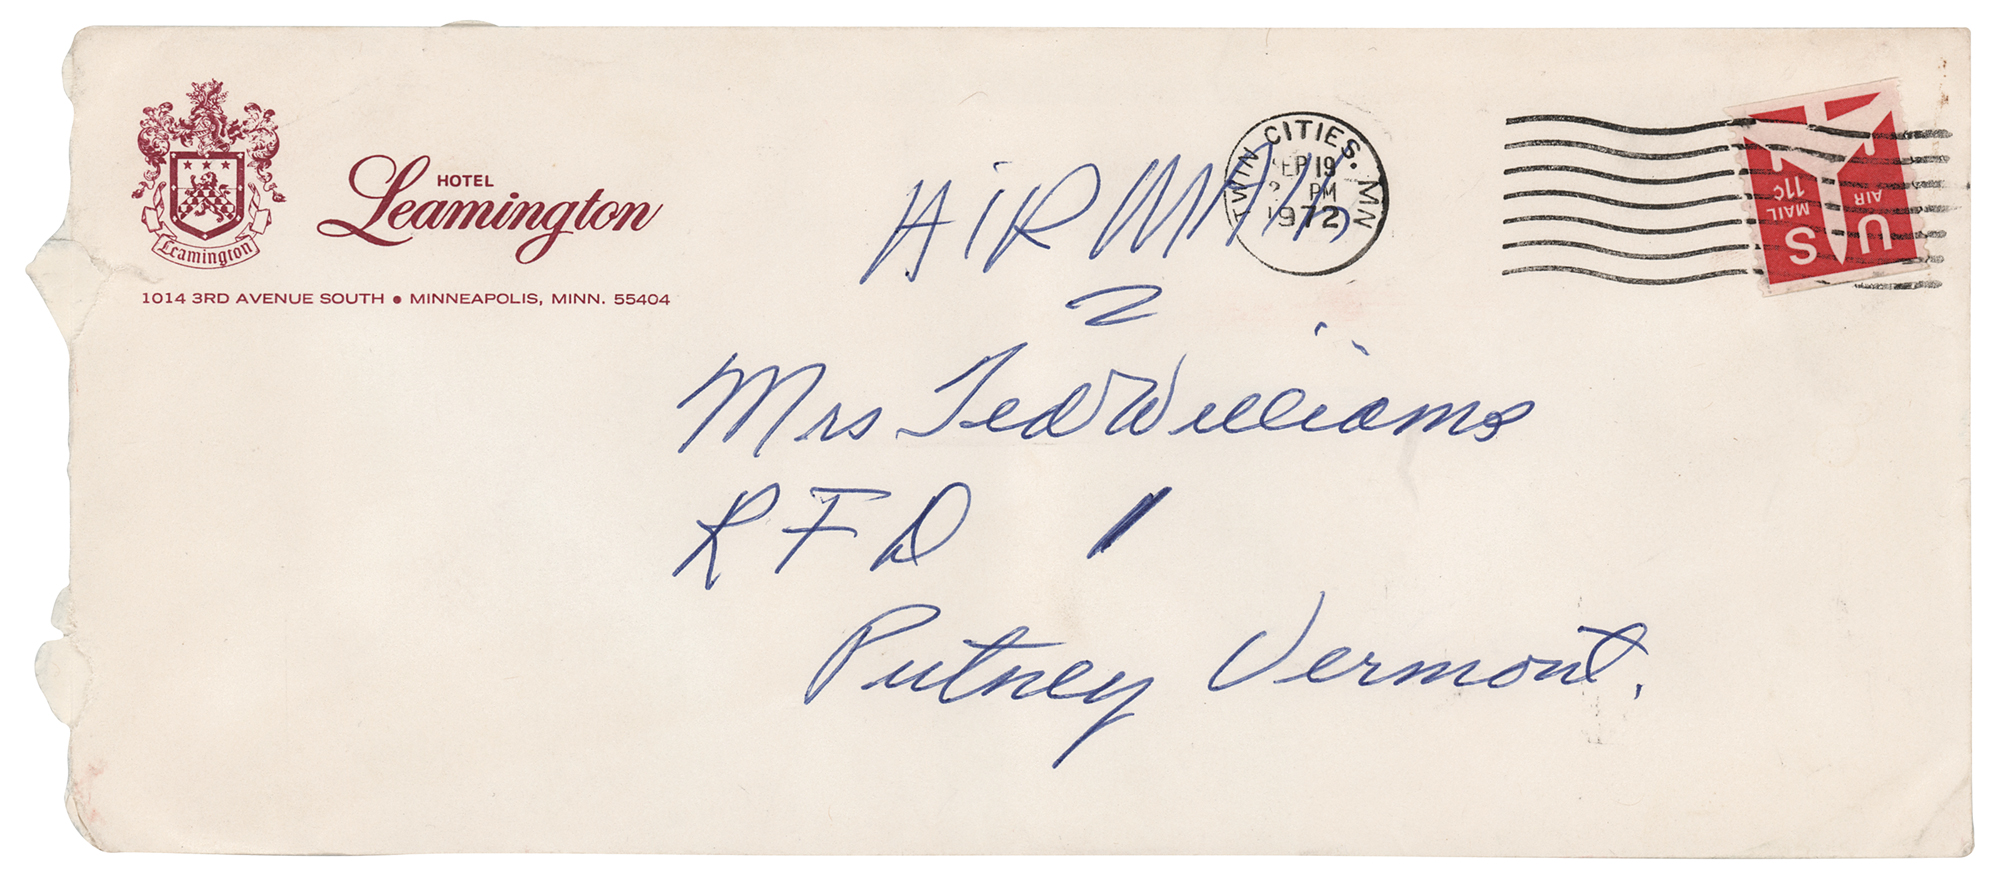 HOTEL
Leamington
Leamington
1014 3RD AVENUE SOUTH • MINNEAPOLIS, MINN. 55404
AIR MAIL
TWIN CITIES, MN
SEP 19
PM
1972
U S
AIR
MAIL
11c
Mrs Ted Williams
RFD 1
Putney Vermont.